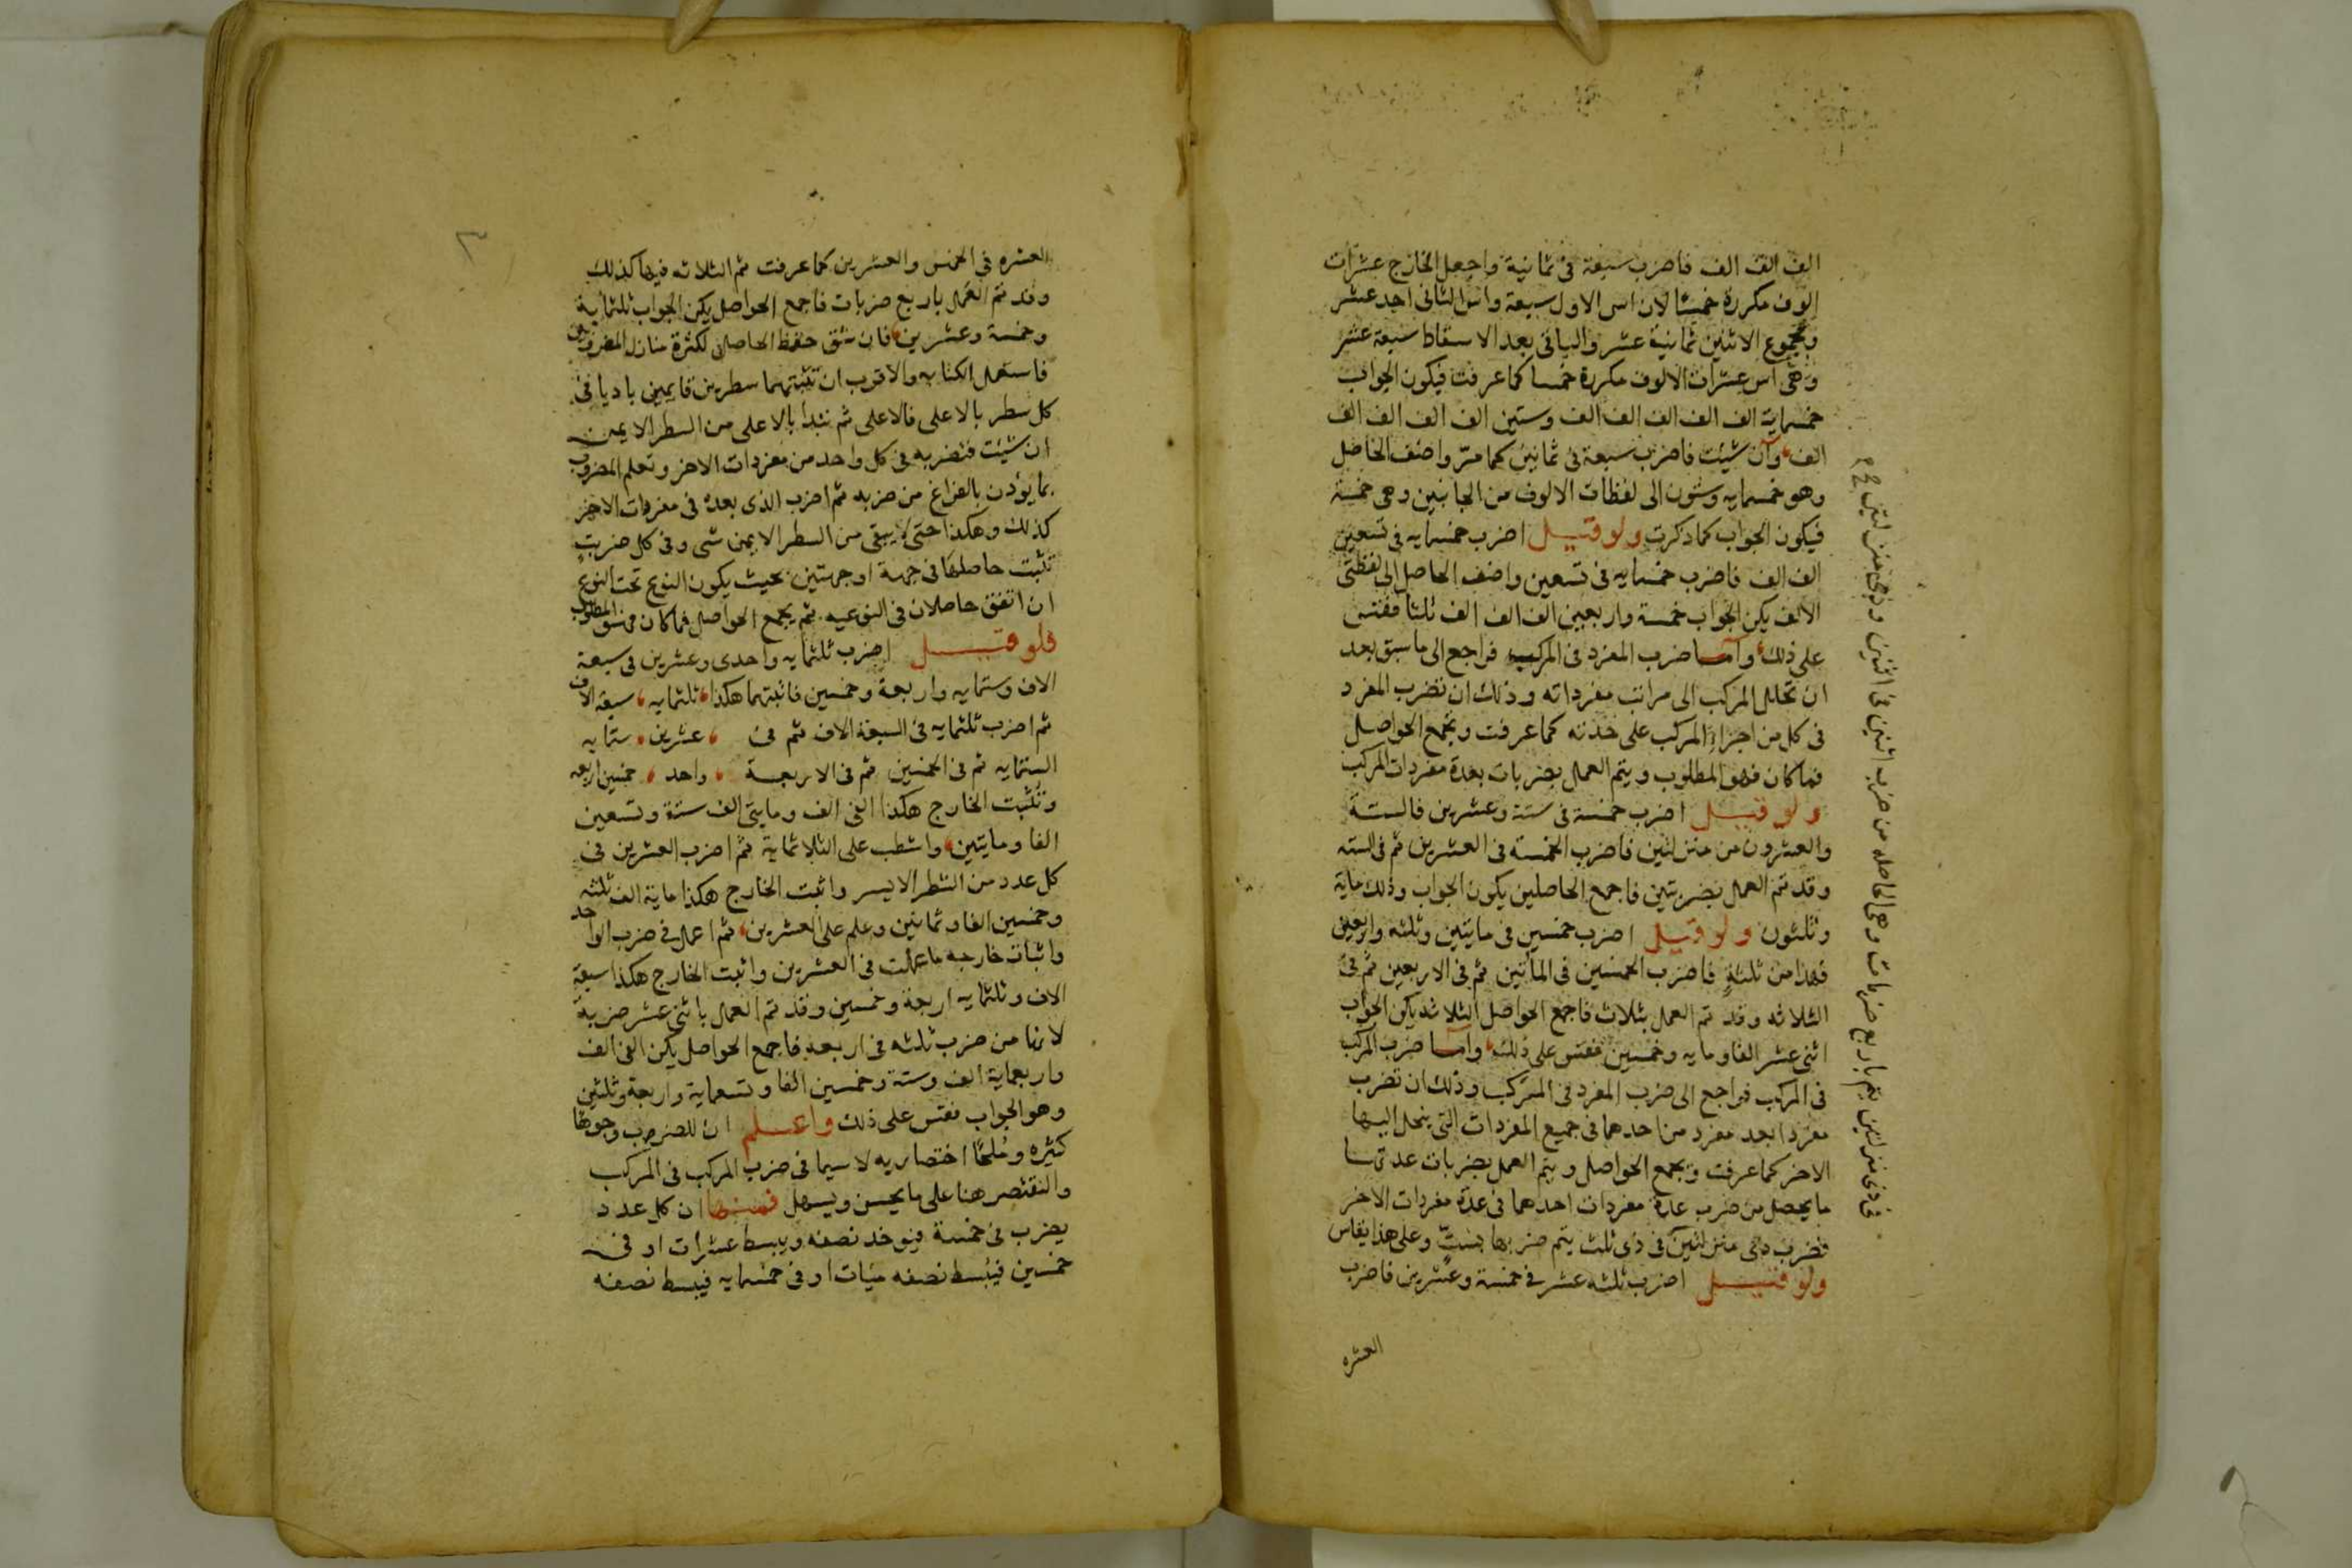 الف الف الف فاضرب سبعة في ثمانية واجعل الخارج عشرات
الوف مكررة خمسًا لان اس الاول سبعة واس الثاني احد عشر
ومجموع الاثنين ثمانية عشر والباقي بعد الاسقاط سبعة عشر
وهي اس عشرات الالوف مكررة خمسا كما عرفت فيكون الجواب
خمسماية الف الف الف الف الف وستين الف الف الف الف
الف وان شيت فاضرب سبعة في ثمانين كما مر واضف الحاصل
وهو خمسمايه وستون الى لفظات الالوف من الجانبين وهي خمسة
فيكون الجواب كما ذكرت ولو قيل اضرب خمسمايه في تسعين
الف الف فاضرب خمسمايه في تسعين واضف الحاصل الى لفظتي
الالف يكن الجواب خمسة واربعين الف الف الف ثلثا فقس
على ذلك واما ضرب المفرد في المركب فراجع الى ما سبق بعد
ان تحلل المركب الى مراتب مفرداته وذلك ان تضرب المفرد
في كل من اجزاء المركب على حدته كما عرفت وتجمع الحواصل
فما كان فهو المطلوب ويتم العمل بضربات بعدة مفردات المركب
ولو قيل اضرب خمسة في ستة وعشرين فالستة
والعشرون من منزلتين فاضرب الخمسة في العشرين ثم في السته
وقد تم العمل بضربتين فاجمع الحاصلين يكون الجواب وذلك ماية
وثلثون ولو قيل اضرب خمسين في مايتين وثلثه واربعين
فهذا من ثلثة فاضرب الخمسين في المأتين ثم في الاربعين ثم في
الثلاثه وقد تم العمل بثلاث فاجمع الحواصل الثلاثه يكن الجواب
اثني عشر الفا ومايه وخمسين فقس على ذلك واما ضرب المركب
في المركب فراجع الى ضرب المفرد في المركب وذلك ان تضرب
مفردا بعد مفرد من احدهما في جميع المفردات التي ينحل اليها
الاخر كما عرفت وتجمع الحواصل ويتم العمل بضربات عدتها
ما يحصل من ضرب عدة مفردات احدهما في عدة مفردات الاخر
فضرب ذي منزلتين في ذي ثلث يتم ضربها بست وعلى هذا يقاس
ولو قيل اضرب ثلثه عشر في خمسة وعشرين فاضرب
العشره
في ذي منزلتين يتم باربع ضربات وهي الحاصله من ضرب اثنين في اثنين وذي منزلتين
العشره في الخمس والعشرين كما عرفت ثم الثلاثه فيها كذلك
وقد تم العمل باربع ضربات فاجمع الحواصل يكن الجواب ثلثماية
وخمسة وعشرين فان شق حفظ الحاصل لكثرة منازل المضروبين
فاستعمل الكتابه والاقرب ان تثبتهما سطرين قايمين باديا في
كل سطر بالاعلى فالاعلى ثم تبدا بالاعلى من السطر الايمن
ان شيت فتضربه في كل واحد من مفردات الاخر وتعلم المضروب
بما يؤذن بالفراغ من ضربه ثم اضرب الذي بعده في مفردات الاخر
كذلك وهكذا حتى لا يبقى من السطر الايمن شي وفي كل ضربت
تثبت حاصلها في جهة او جهتين بحيث يكون النوع تحت النوع
ان اتفق حاصلان في النوعيه ثم يجمع الحواصل فما كان فهو المطلوب
فلو قيل اضرب ثلثمايه واحدى وعشرين في سبعة
الاف وستمايه واربعة وخمسين فاثبتهما هكذا ثلثمايه سبعة الاف
ثم اضرب ثلثمايه في السبعة الاف ثم في عشرين ستمايه
الستمايه ثم في الخمسين ثم في الاربعة واحد خمسين اربعه
وتثبت الخارج هكذا الفي الف ومايتي الف ستة وتسعين
الفا ومايتين واشطب على الثلاثماية ثم اضرب العشرين في
كل عدد من السطر الايسر واثبت الخارج هكذا ماية الف ثلثه
وخمسين الفا وثمانين وعلم على العشرين ثم اعمل في ضرب الواحد
واثبات خارجه ما عملت في العشرين واثبت الخارج هكذا سبعة
الاف وثلثمايه اربعة وخمسين وقد تم العمل باثني عشر ضربة
لانها من ضرب ثلثه في اربعه فاجمع الحواصل يكن الفي الف
واربعماية الف وستة وخمسين الفا وتسعماية واربعة وثلثين
وهو الجواب فقس على ذلك واعلم ان للضرب وجوها
كثيره وملحًا اختصاريه لا سيما في ضرب المركب في المركب
والنقتصر هنا على ما يحسن ويسهل فمنها ان كل عدد
يضرب في خمسة فيوخذ نصفه ويبسط عشرات او في
خمسين فيبسط نصفه ميات او في خمسمايه فيبسط نصفه